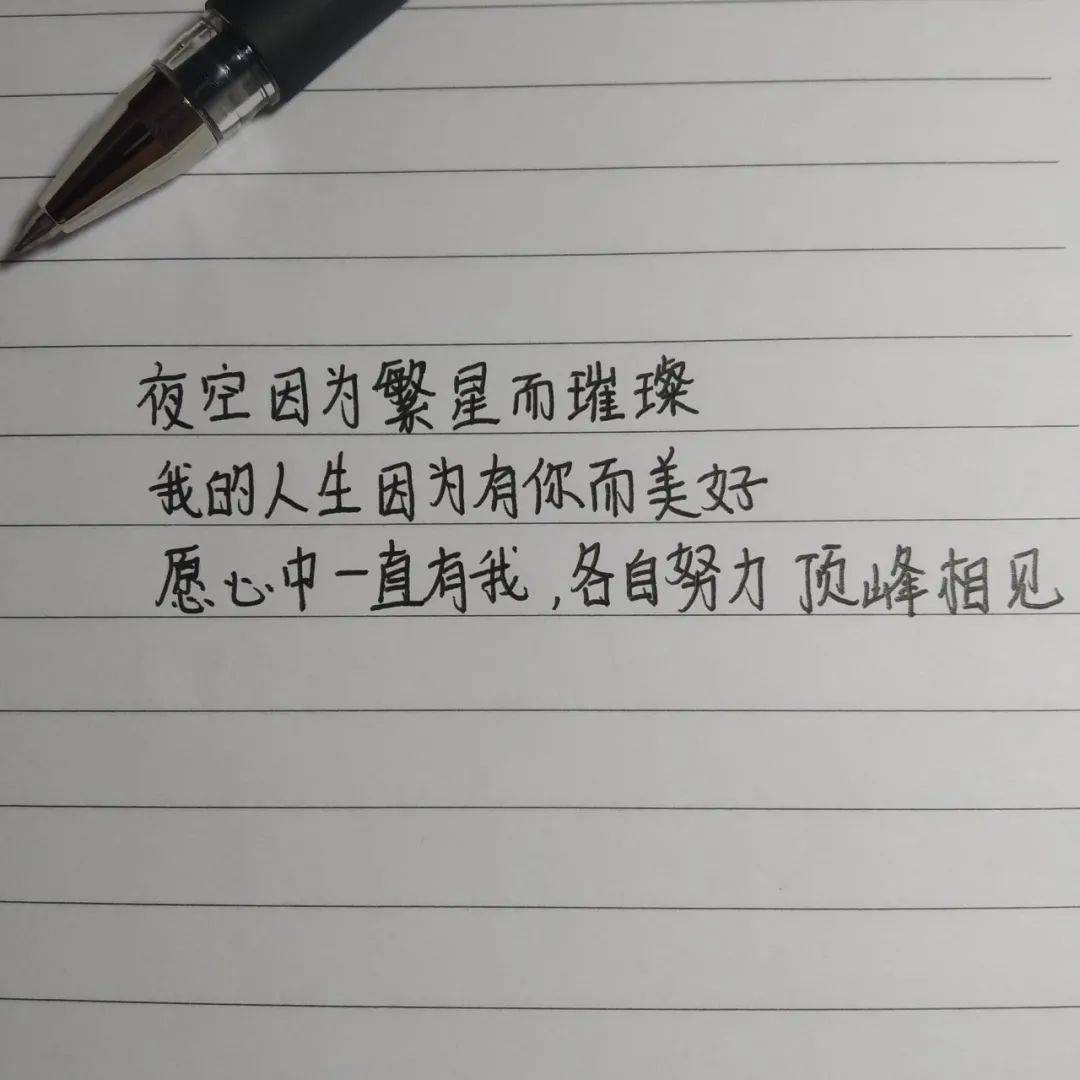 夜空因为繁星而璀璨
我的人生因为有你而美好
愿心中一直有我,各自努力 顶峰相见